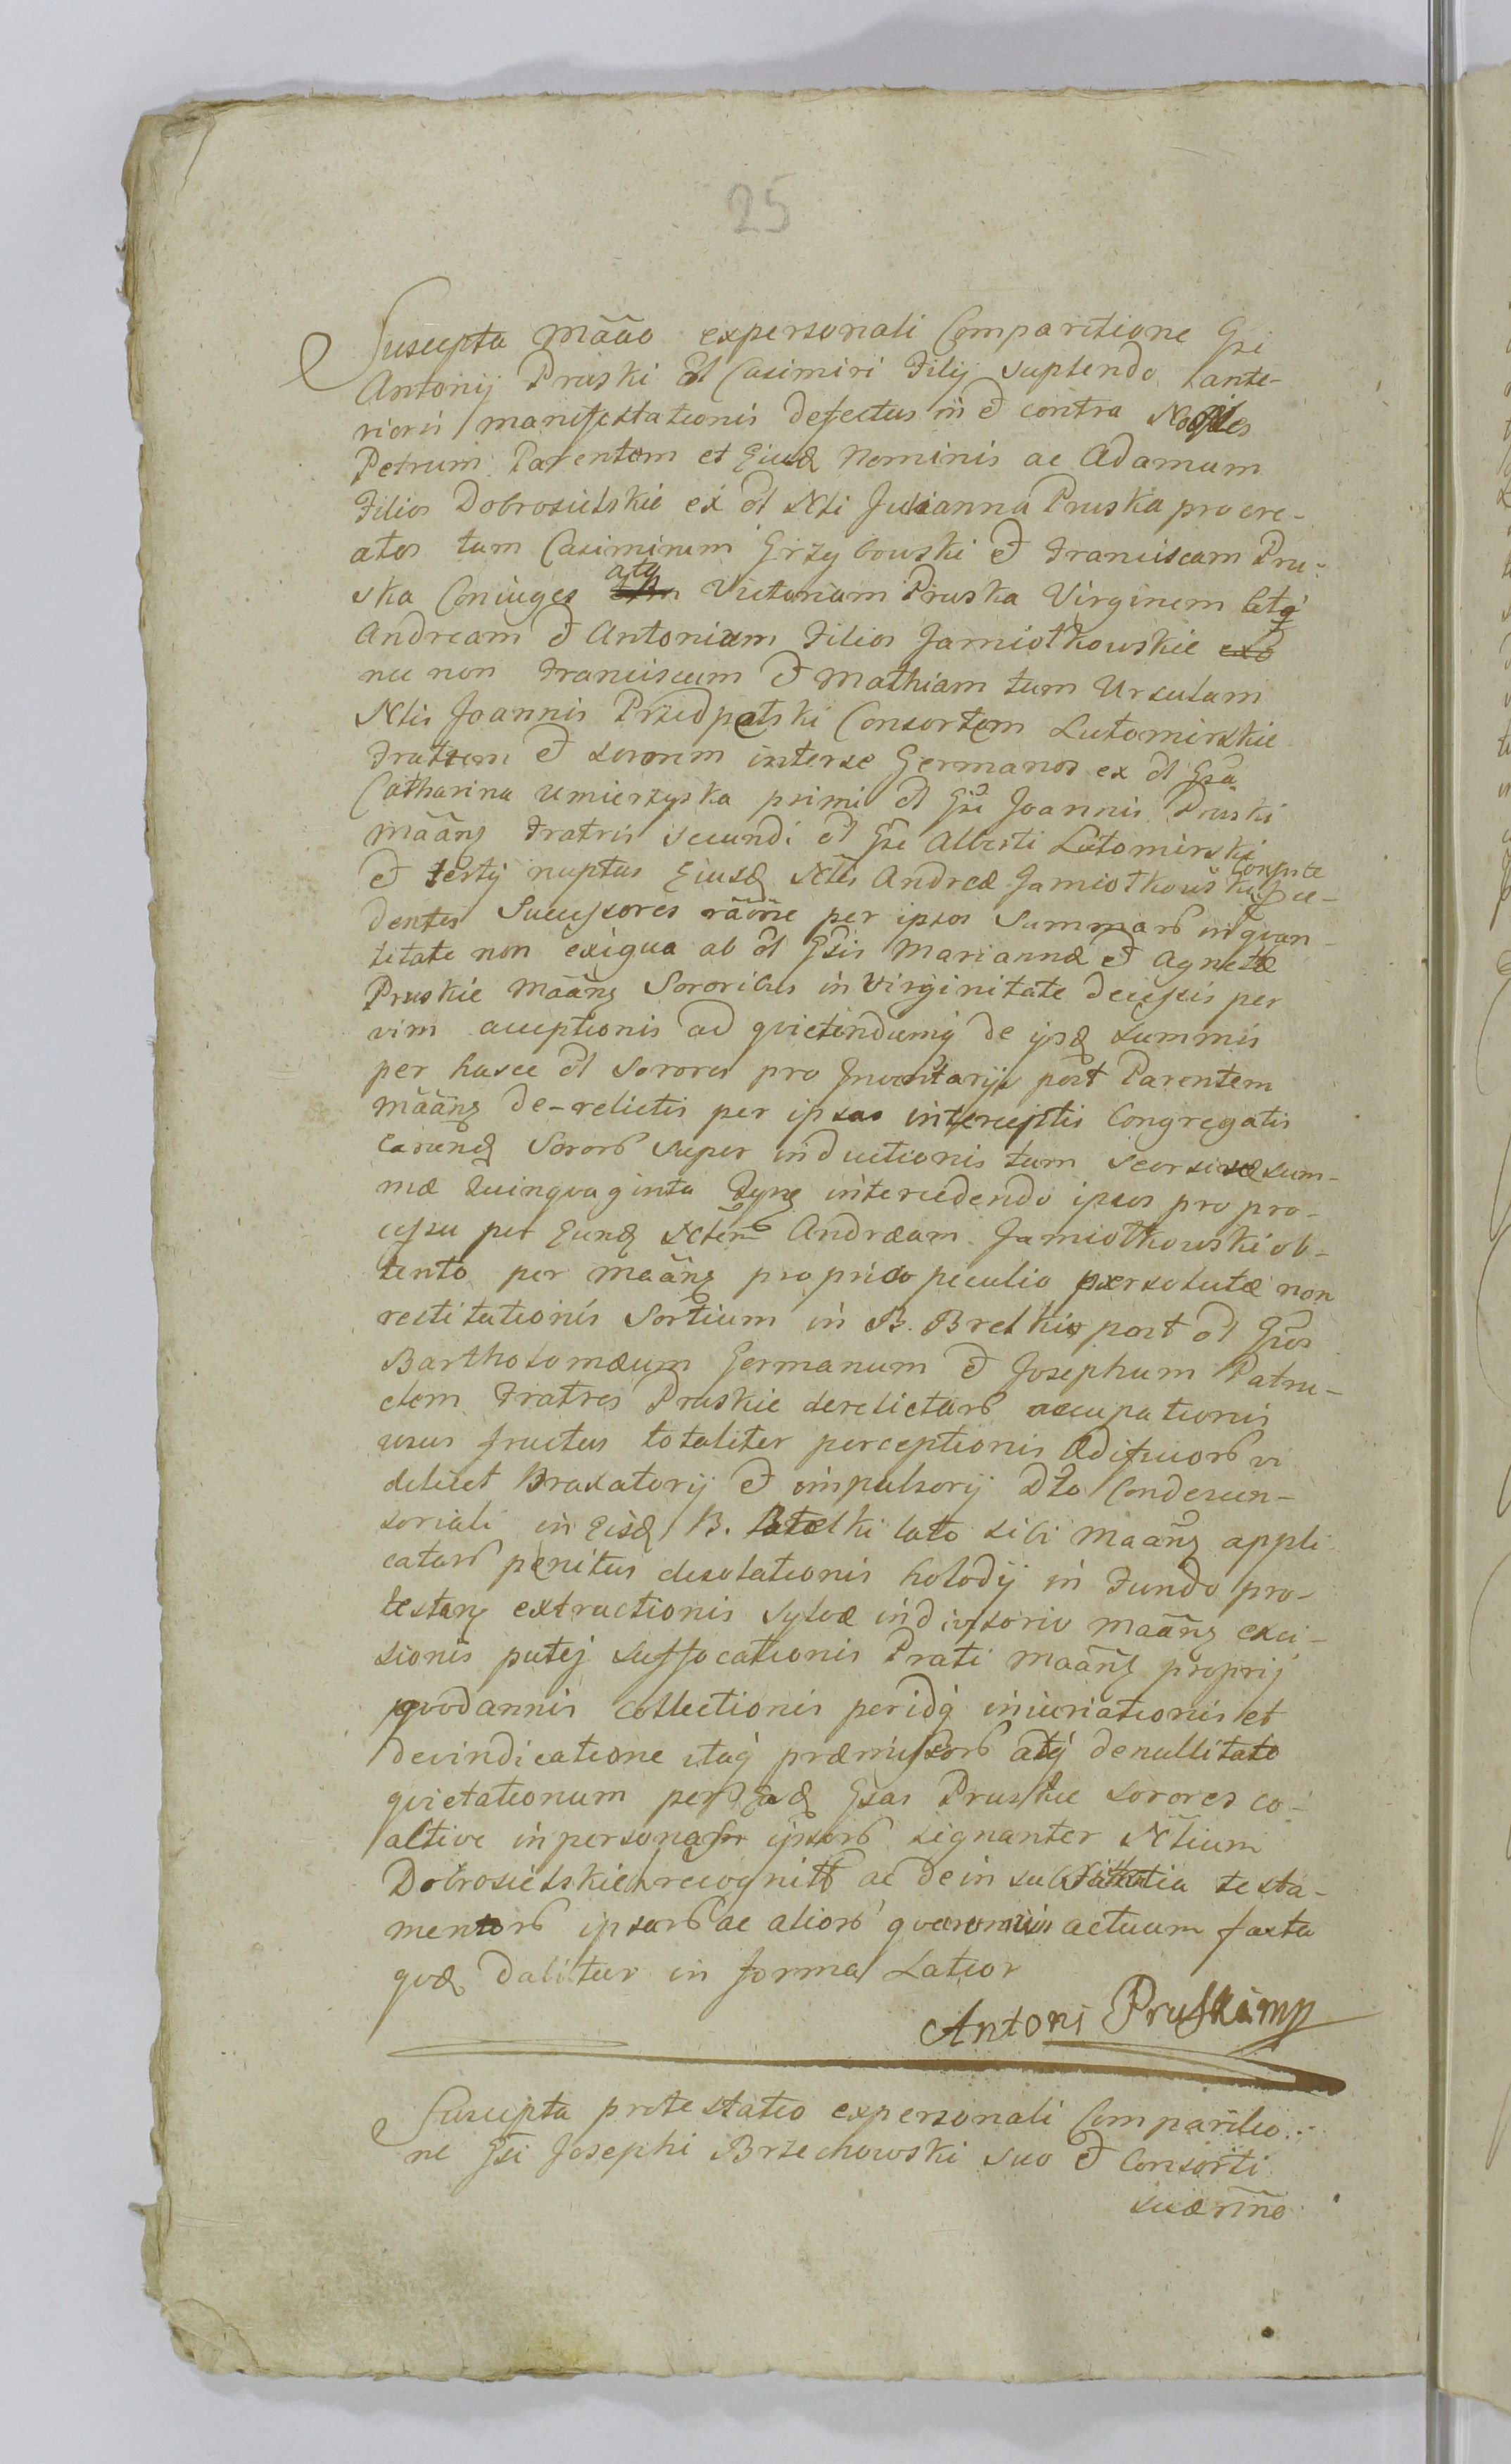 25
Suscepta Mããõ expersonali Comparitione Gsi
Antonij Pruski ol Casimiri Filij suplendo ante-
rioris manifestationis defectus in et contra Nobiles
Petrum Parentem et Eiusd Nominis ac Adamum
Filios Dobrosielskie ex ol Nli Julianna Pruska procre-
atos tum Casimirum Grzybowski et Franciscam Pru-
ska Coniuges atq Victoriam Pruska Virginem atq
Andream et Antonium Filios Jamiołkowskie
nec non Franciscum et Mathiam tum Ursulam
Nlis Joannis Przedpełski Consortem Lutomirskie
Fratrem et sororem interse Germanos ex ol Gsa
Catharina Umierzyska primi ol Gsi Joannis Pruski
mããng Fratris secundi ol Gsi Alberti Lutomirski
et tertij nuptus Eiusd Nlis Andreæ Jamiołkowski Consorte
dentes Successores rãõne per ipsos Summarũ in quan-
titate non exigua ab ol Gsis Mariannæ et Agnetæ
Pruskie Mããng Sororibus in Virginitate decessis per
vim acceptionis ad quietandumq de ijsd summis
per hasce ol Sorores pro Inventarijs post Parentem
mããng de-relictis per ipsas interceptis Congregatis
earund Sororũ super inductionis tum seorsivæ sum-
mæ Quinquaginta intercedendo ipsos pro pro-
cessu per Eund Nlem Andræam Jamiołkowski ob-
tento per mããng proprio peculio persolutæ non
restitutionis Sortium in B. Brelki post ol Gsos
Bartholomæum Germanum et Josephum Patru-
elem Fratres Pruskie derelictarũ occupationis
usus fructus totaliter perceptionis Ædificiorũ vi
delicet Braxatorij et impulsorij Dto Condescen-
soriali in Eisd B. Brelki lato sibi Mããng appli
catarũ penitus desolationis hołody in Fundo pro-
testang extructionis Sylvæ indivisorio mããng exci-
sionis putej suffocationis Prati mããng proprij
quodannis collectionis peridq iniuriationis et
devindicatione itaq præmissorũ atq denullitate
quietationum per Ead Gsas Pruskie sorores co-
active inpersonam ipsorũ signanter Nlium
Dobrosielskie recognitũ ac dein substantia testa-
mentorũ ipsarũ ac aliorũ quorumvis actuum facta
quæ dabitur in forma Latior
Antoni Pruski mp
Suscepta protestatio expersonali Comparitio-
ne Gsi Josephi Brzechowski suo et Consorti
suæ nĩne